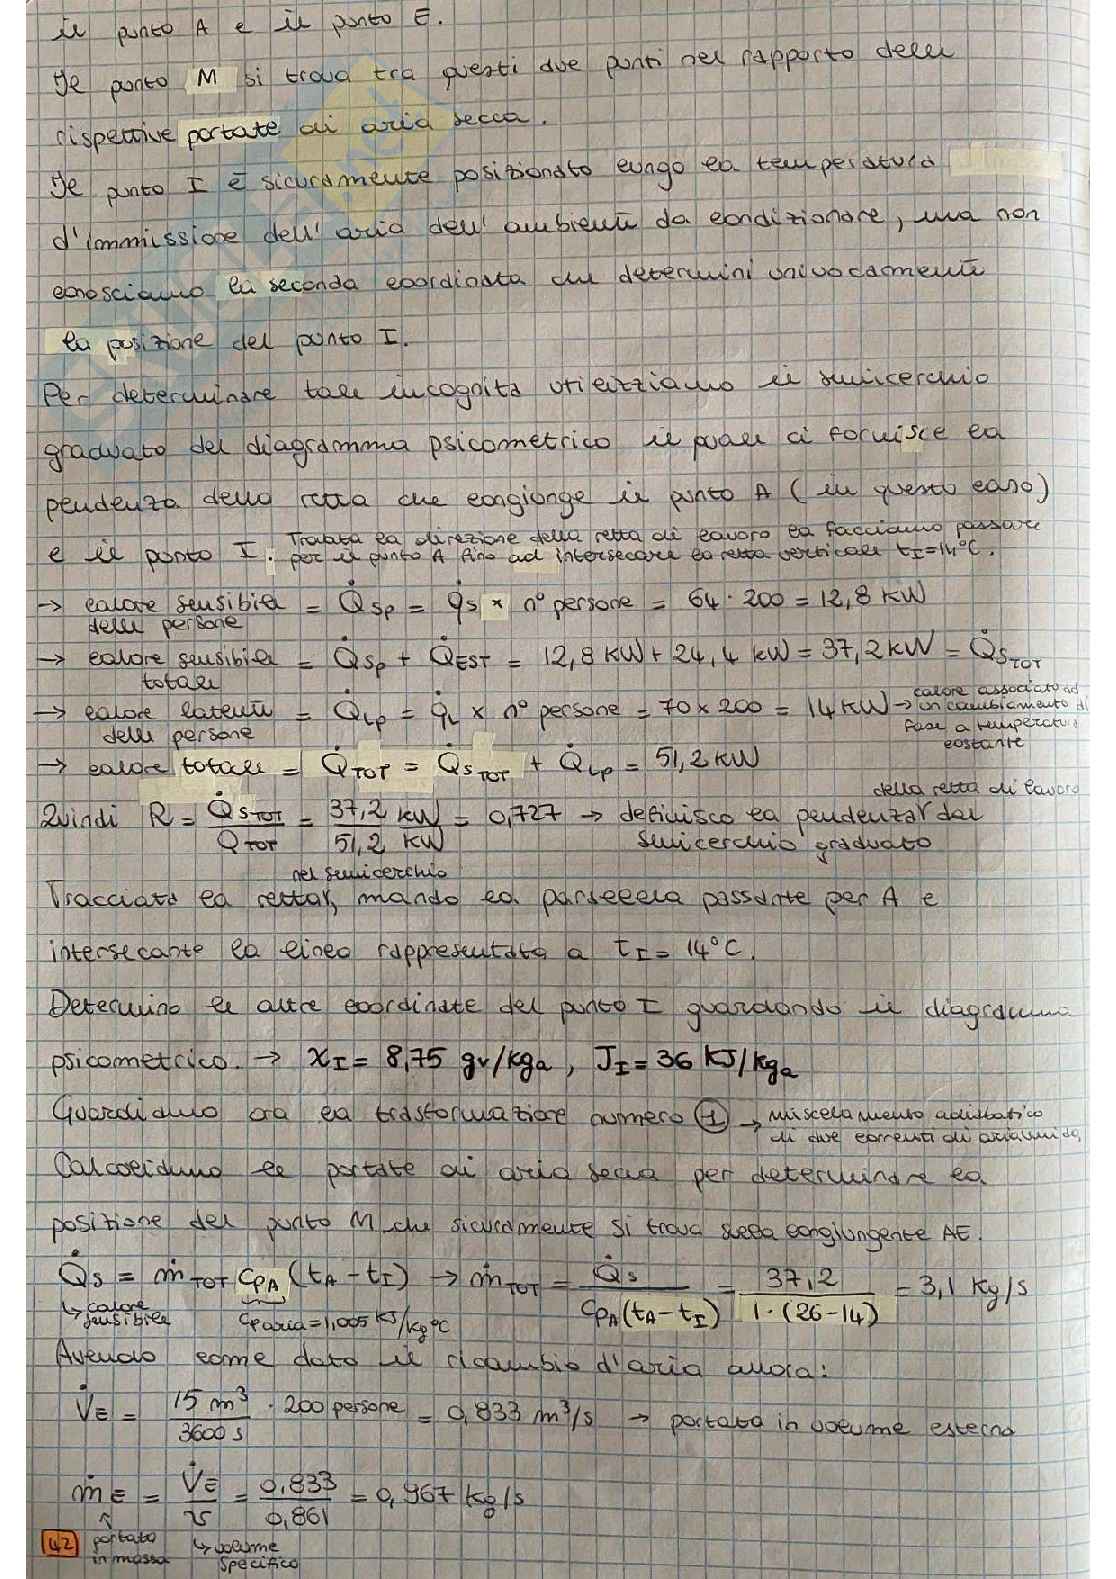 il punto A e il punto E.
Il punto M si trova tra questi due punti nel rapporto delle
rispettive portate di aria secca.
Il punto I è sicuramente posizionato lungo la temperatura
d'immissione dell'aria dell'ambiente da condizionare, ma non
conosciamo la seconda coordinata che determini univocamente
la posizione del punto I.
Per determinare tale incognita utilizziamo il semicerchio
graduato del diagramma psicometrico il quale ci fornisce la
pendenza della retta che congiunge il punto A (in questo caso)
e il punto I. Trovata la direzione della retta di lavoro la facciamo passare
per il punto A fino ad intersecare la retta verticale tI=14°C.
→ calore sensibile delle persone = Q̇sp = q̇s × n° persone = 64 · 200 = 12,8 KW
→ calore sensibile totale = Q̇sp + Q̇EST = 12,8 KW + 24,4 KW = 37,2 KW = Q̇STOT
→ calore latente delle persone = Q̇Lp = q̇L × n° persone = 70 × 200 = 14 KW → calore associato ad un cambiamento di fase a temperatura costante
→ calore totale = Q̇TOT = Q̇STOT + Q̇Lp = 51,2 KW
Quindi R = Q̇STOT / Q̇TOT = 37,2 KW / 51,2 KW = 0,727 → definisco la pendenza della retta di lavoro dal semicerchio graduato
Tracciata la retta nel semicerchio, mando la parallela passante per A e
intersecante la linea rappresentata a tI = 14°C.
Determino le altre coordinate del punto I guardando il diagramma
psicometrico. → xI = 8,75 gv/kga, JI = 36 KJ/kga
Guardiamo ora la trasformazione numero ① → miscelamento adiabatico
di due correnti di aria umida.
Calcoliamo le portate di aria secca per determinare la
posizione del punto M che sicuramente si trova sulla congiungente AE.
Q̇s = ṁTOT cpA (tA - tI) → ṁTOT = Q̇s / cpA (tA - tI) = 37,2 / 1 · (26-14) = 3,1 Kg/s
↳ calore sensibile
cparia = 1,005 KJ/kg°C
Avendo come dato il ricambio d'aria allora:
V̇E = 15 m³ / 3600 s · 200 persone = 0,833 m³/s → portata in volume esterna
ṁE = V̇E / v = 0,833 / 0,861 = 0,967 kg/s
42 portata in massa ↳ volume specifico